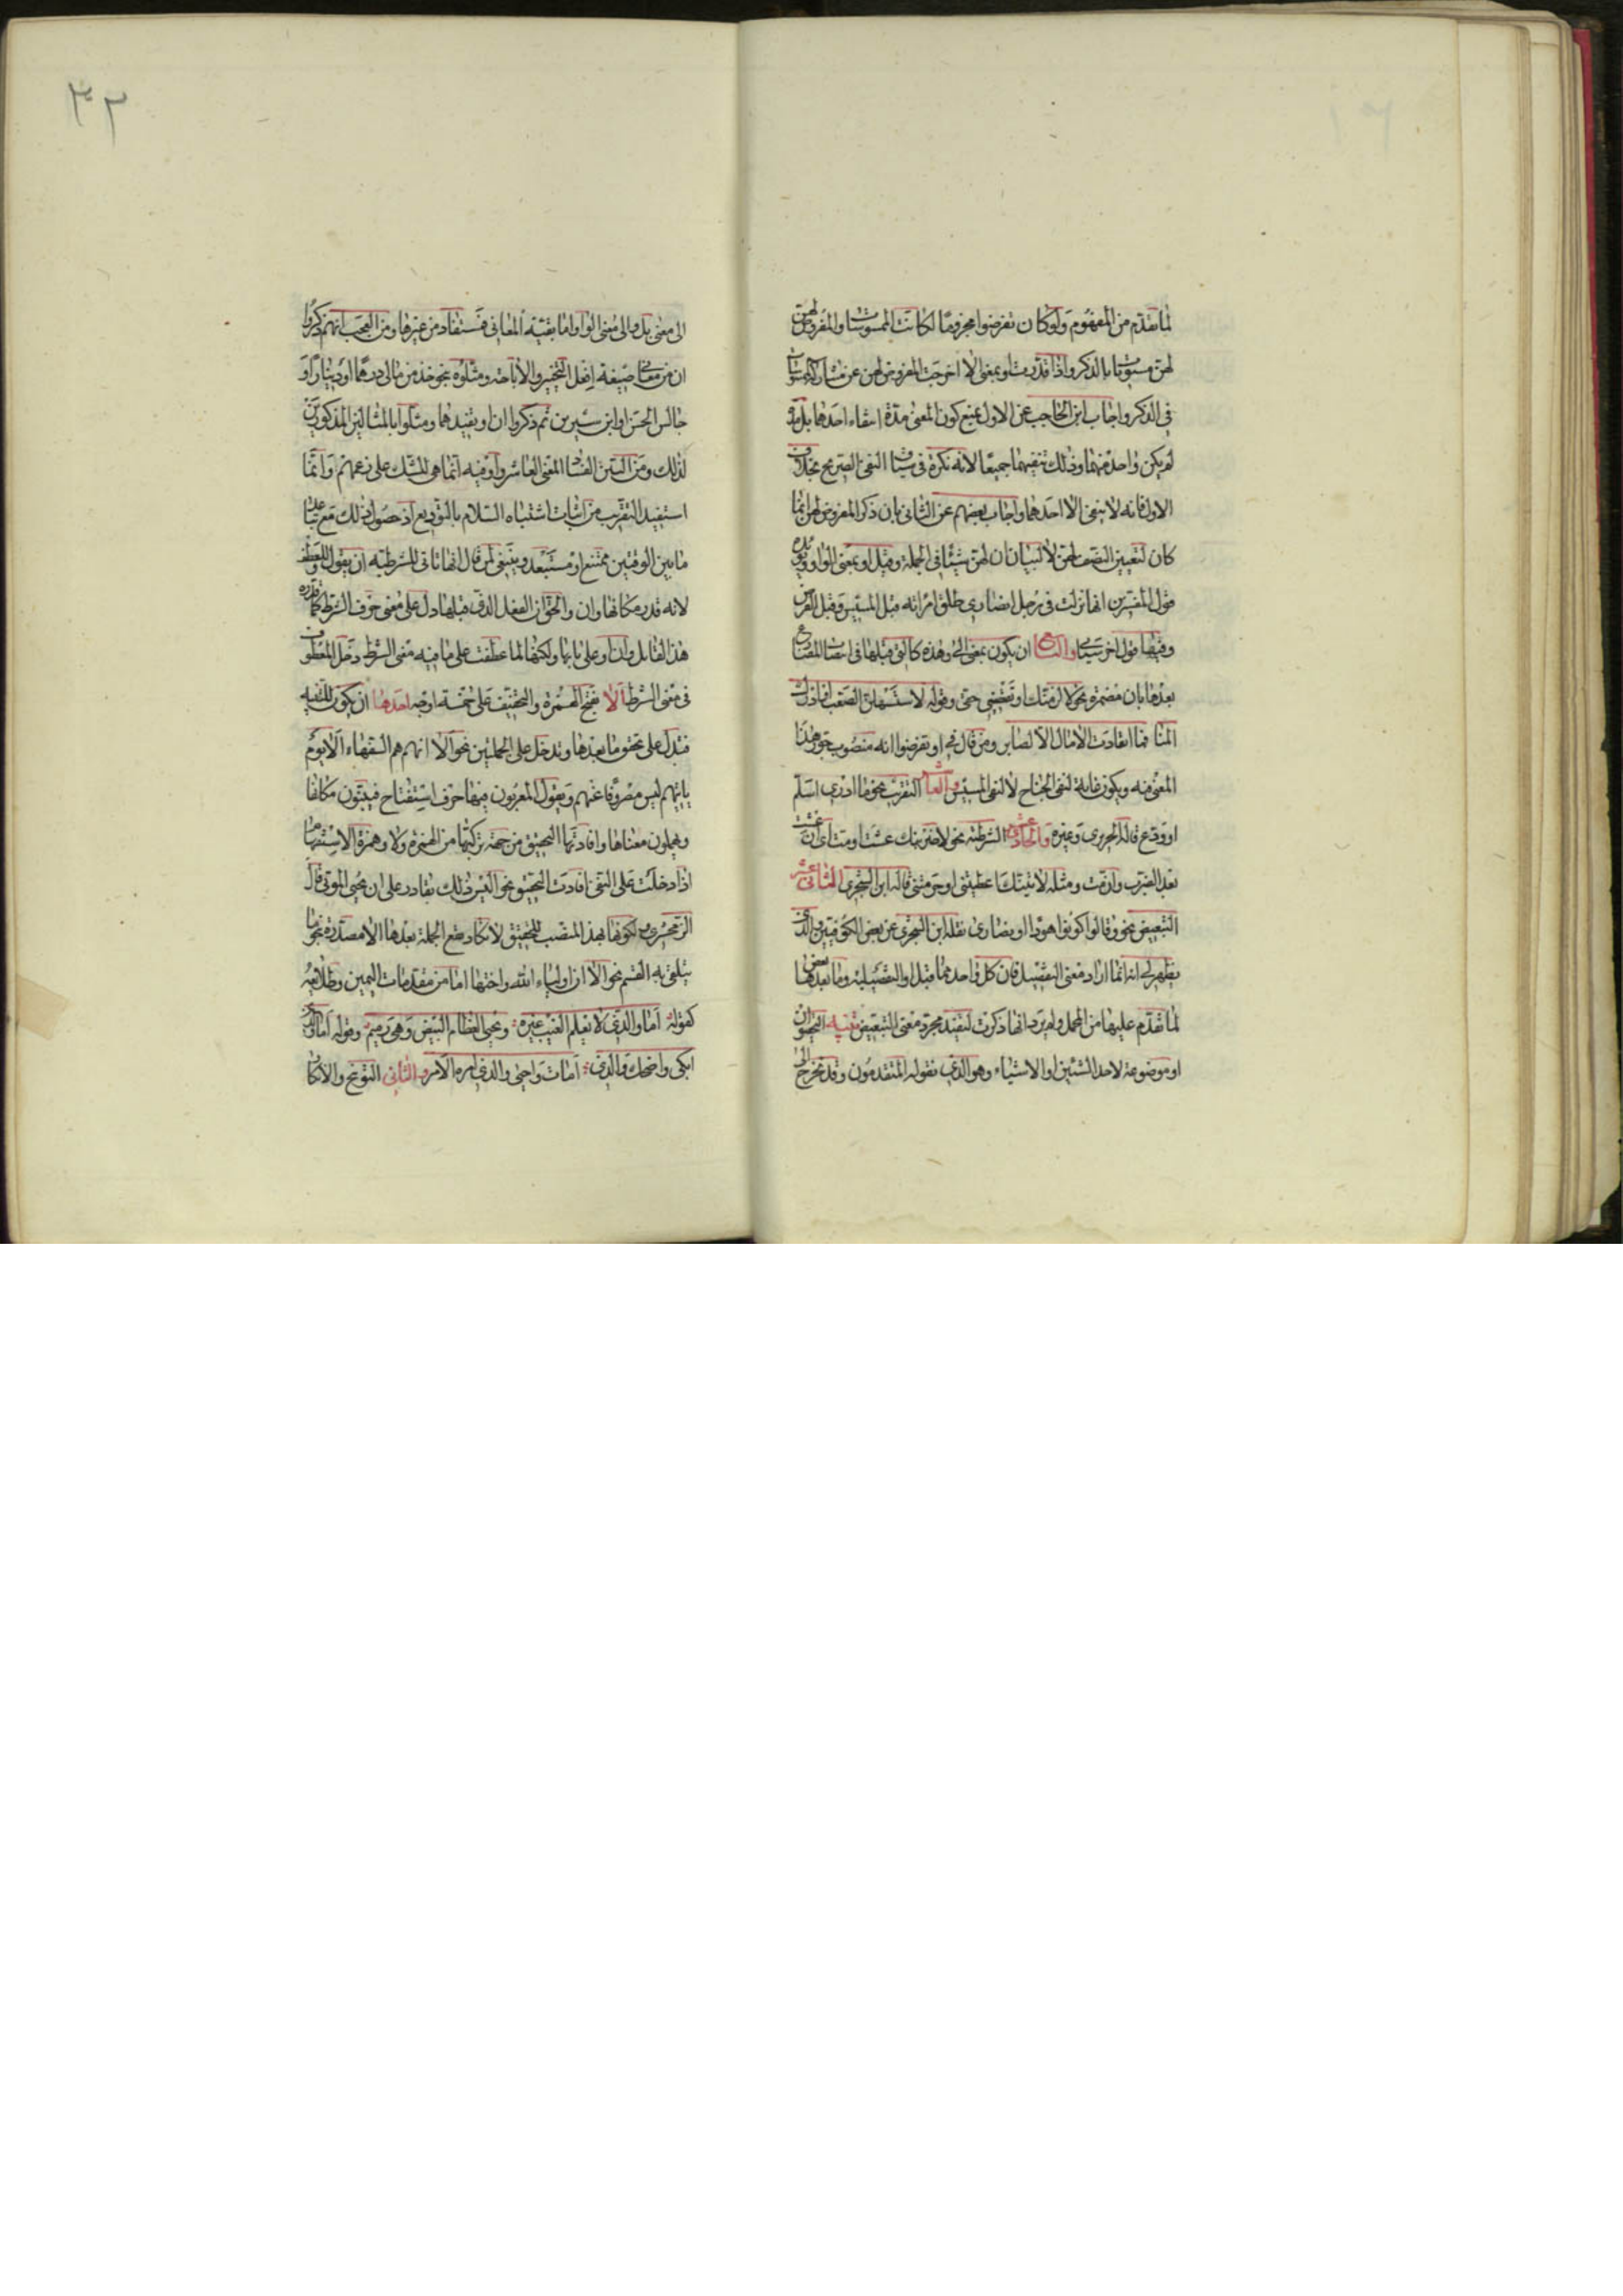 لما تقدم من المفهوم ولو كان تفرضوا مجزوما لكانت الممسوسات والمفروض لهن
لهن مستويات بالذكر واذا قدرت او بمعنى الا اخرجت المفروض لهن عن مشاركة الممسوسات
في الذكر واجاب ابن الحاجب عن الاول بمنع كون المعنى مدة انتفاء احدهما بل مدة
لم يكن واحد منهما وذلك بنفيهما جميعا لانه نكرة في سياق النفي الصريح بخلاف
الاول فانه لا ينفي الا احدهما واجاب بعضهم عن الثاني بان ذكر المفروض لهن انما
كان لتعيين النصف لهن لا لبيان ان لهن شيئا في الجملة وقيل او بمعنى الواو ويؤيده
قول المفسرين انها نزلت في رجل انصاري طلق امراته قبل المسيس وقبل الفرض
وفيها قول اخر سياتي والتاسع ان يكون بمعنى الى وهذه كالتي قبلها في انتصاب المضارع
بعدها بان مضمرة نحو لالزمنك او تقضيني حقي وقوله لاستسهلن الصعب او ادرك
المنا فما انقادت الامال الا لصابر ومن قال في او تفرضوا انه منصوب جوز هذا
المعنى فيه ويكون غاية لنفي الجناح لا لنفي المسيس والعاشر التقريب نحو ما ادري اسلم
او ودع قاله الحريري وغيره والحادي عشر الشرطية نحو لاضربنك عشت او مت اي ان عشت
بعد الضرب وان مت ومثله لاتينك اعطيتني او حرمتني قاله ابن الشجري الثاني عشر
التبعيض نحو وقالوا كونوا هودا او نصارى نقله ابن الشجري عن بعض الكوفيين والذي
يظهر لي انه انما اراد معنى التفصيل فان كل واحد مما قبل او التفصيلية وما بعدها بعض
لما تقدم عليهما من المجمل ولم يرد انها ذكرت لتفيد مجرد معنى التبعيض تنبيه التحقيق ان
او موضوعة لاحد الشيئين او الاشياء وهو الذي يقوله المتقدمون وقد تخرج الى
٣٢
الى معنى بل والى معنى الواو اما بقية المعاني فمستفاد من غيرها ومن العجب انهم ذكروا
ان من معاني صيغة افعل التخيير والاباحة ومثلوه بنحو خذ من مالي درهما او دينارا او
جالس الحسن او ابن سيرين ثم ذكروا ان او يفيدهما ومثلوا بالمثالين المذكورين
لذلك ومن البين الفساد المعنى العاشر واو فيه انما هي للشك على زعمهم وانما
استفيد التقريب من اثبات اشتباه السلام بالتوديع اذ حصول ذلك مع تباعد
ما بين الوقتين ممتنع او مستبعد وينبغي لمن قال انها تاتي للشرطية ان يقول وللعطف
لانه قدر مكانها وان والحق ان الفعل الذي قبلها دل على معنى حرف الشرط كما قدره
هذا القائل وان او على بابها ولكنها لما عطفت على ما فيه معنى الشرط دخل المعطوف
في معنى الشرط الا بفتح الهمزة والتخفيف على خمسة اوجه احدها ان يكون للتنبيه
فتدل على تحقق ما بعدها وتدخل على الجملتين نحو الا انهم هم السفهاء الا يوم
ياتيهم ليس مصروفا عنهم ويقول المعربون فيها حرف استفتاح فيبينون مكانها
ويهملون معناها وافادتها التحقيق من جهة تركيبها من الهمزة ولا وهمزة الاستفهام
اذا دخلت على النفي افادت التحقيق نحو اليس ذلك بقادر على ان يحيي الموتى قال
الزمخشري لكونها بهذا المنصب للتحقيق لا تكاد تقع الجملة بعدها الا مصدرة بنحو ما
يتلقى به القسم نحو الا ان اولياء الله واختها اما من مقدمات اليمين وطلائعه
كقوله اما والذي لا يعلم الغيب غيره ويحيي العظام البيض وهي رميم وقوله اما والذي
ابكى واضحك والذي امات واحيى والذي امره الامر والثاني التوبيخ والانكار